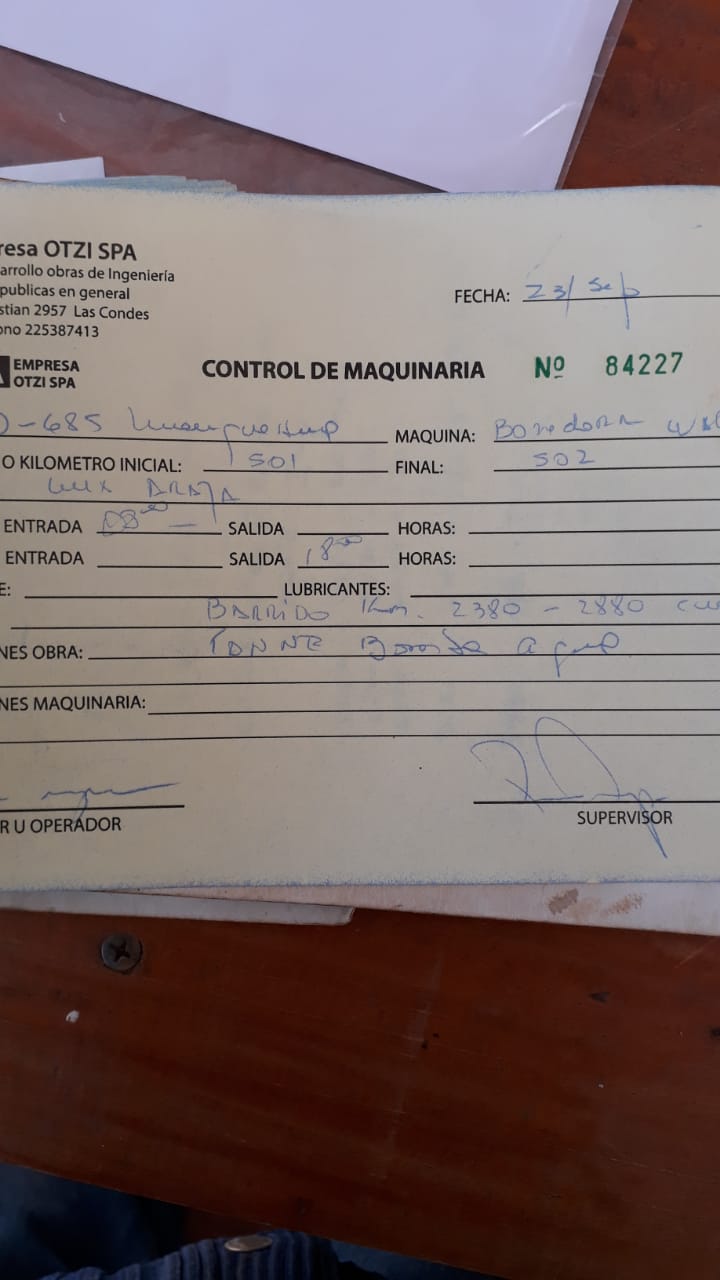 resa OTZI SPA
arrollo obras de Ingeniería
publicas en general
stian 2957 Las Condes
ono 225387413
FECHA: 23/ Sep
EMPRESA
OTZI SPA
CONTROL DE MAQUINARIA Nº 84227
-685 MAQUINA:
O KILOMETRO INICIAL: 501 FINAL: 502
ENTRADA 08⁰⁰ SALIDA HORAS:
ENTRADA SALIDA 18⁰⁰ HORAS:
E: LUBRICANTES:
BARRIDO Km. 2380 - 2880
NES OBRA:
NES MAQUINARIA:
R U OPERADOR SUPERVISOR